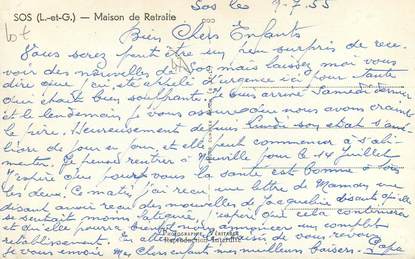 SOS (L.-et-G.) — Maison de Retraite
Sos les 9-7-55
lot
Bien Chers Enfants
Vous serez peut être un peu surpris de rece-
voir des nouvelles de Sos, mais laissez moi vous
dire que j'ai été appelé d'urgence ici pour Tante
qui était bien souffrante. Je suis arrivé Samedi dernier
et le lendemain, je vous assure que nous avons craint
le pire. Heureusement depuis Lundi son état s'amé-
liore de jour en jour, et elle peut commencer à s'ali-
menter. Je pense rentrer à Neuville pour le 14 Juillet
J'espère que pour vous la santé est bonne à tous
les deux. Ce matin j'ai reçu une lettre de Maman me
disant avoir reçu des nouvelles de Jacqueline disant qu'elle
se sentait moins fatiguée, j'espère que cela continuera
et qu'elle pourra bientôt nous annoncer un complet
rétablissement. En attendant le plaisir de vous revoir
je vous envoie Mes Chers enfants mes meilleurs baisers. Papa
Reproduction Interdite